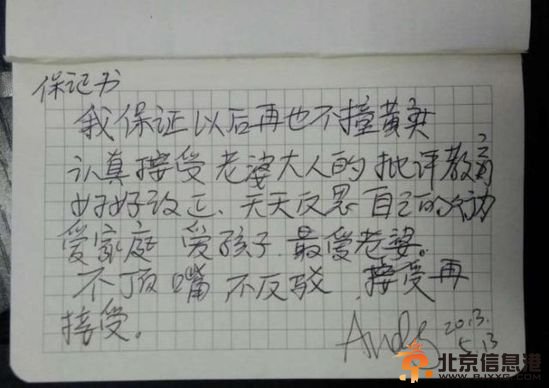 保证书
我保证以后再也不撞黄奕
认真接受老婆大人的批评教育
好好改正、天天反思自己的
爱家庭 爱孩子 最爱老婆。
不顶嘴 不反驳 接受再
接受。
Andy 2013.
5.13
北京信息港